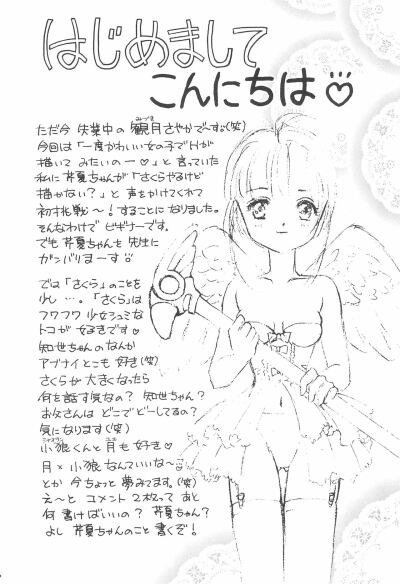 はじめまして
こんにちは♡
ただ今 失業中の 観月さやかでーす。(笑)
みづき
今回は「一度かわいい女の子でHが
描いて みたいのー♡」と言っていた
私に 芹夏ちゃんが「さくらやるけど
描かない?」と 声をかけてくれて
初挑戦〜!することに なりました。
そんなわけで ビギナーです。
でも 芹夏ちゃんを 先生に
ガンバリまーす
では「さくら」のことを
少し…。「さくら」は
フワフワ 少女シュミな
トコが 好きです♡
知世ちゃんの なんか
アブナイとこも 好き(笑)
さくらが 大きくなったら
何を話す気なの? 知世ちゃん?
お父さんは どこでどーしてるの?
気になります(笑)
小狼くんと 月も 好き♡
月×小狼 なんていいな〜
とか 今ちょっと 夢みてます。(笑)
え〜と コメント 2本って あと
何 書けばいいの? 芹夏ちゃん?
よし 芹夏ちゃんのこと 書くぞ!